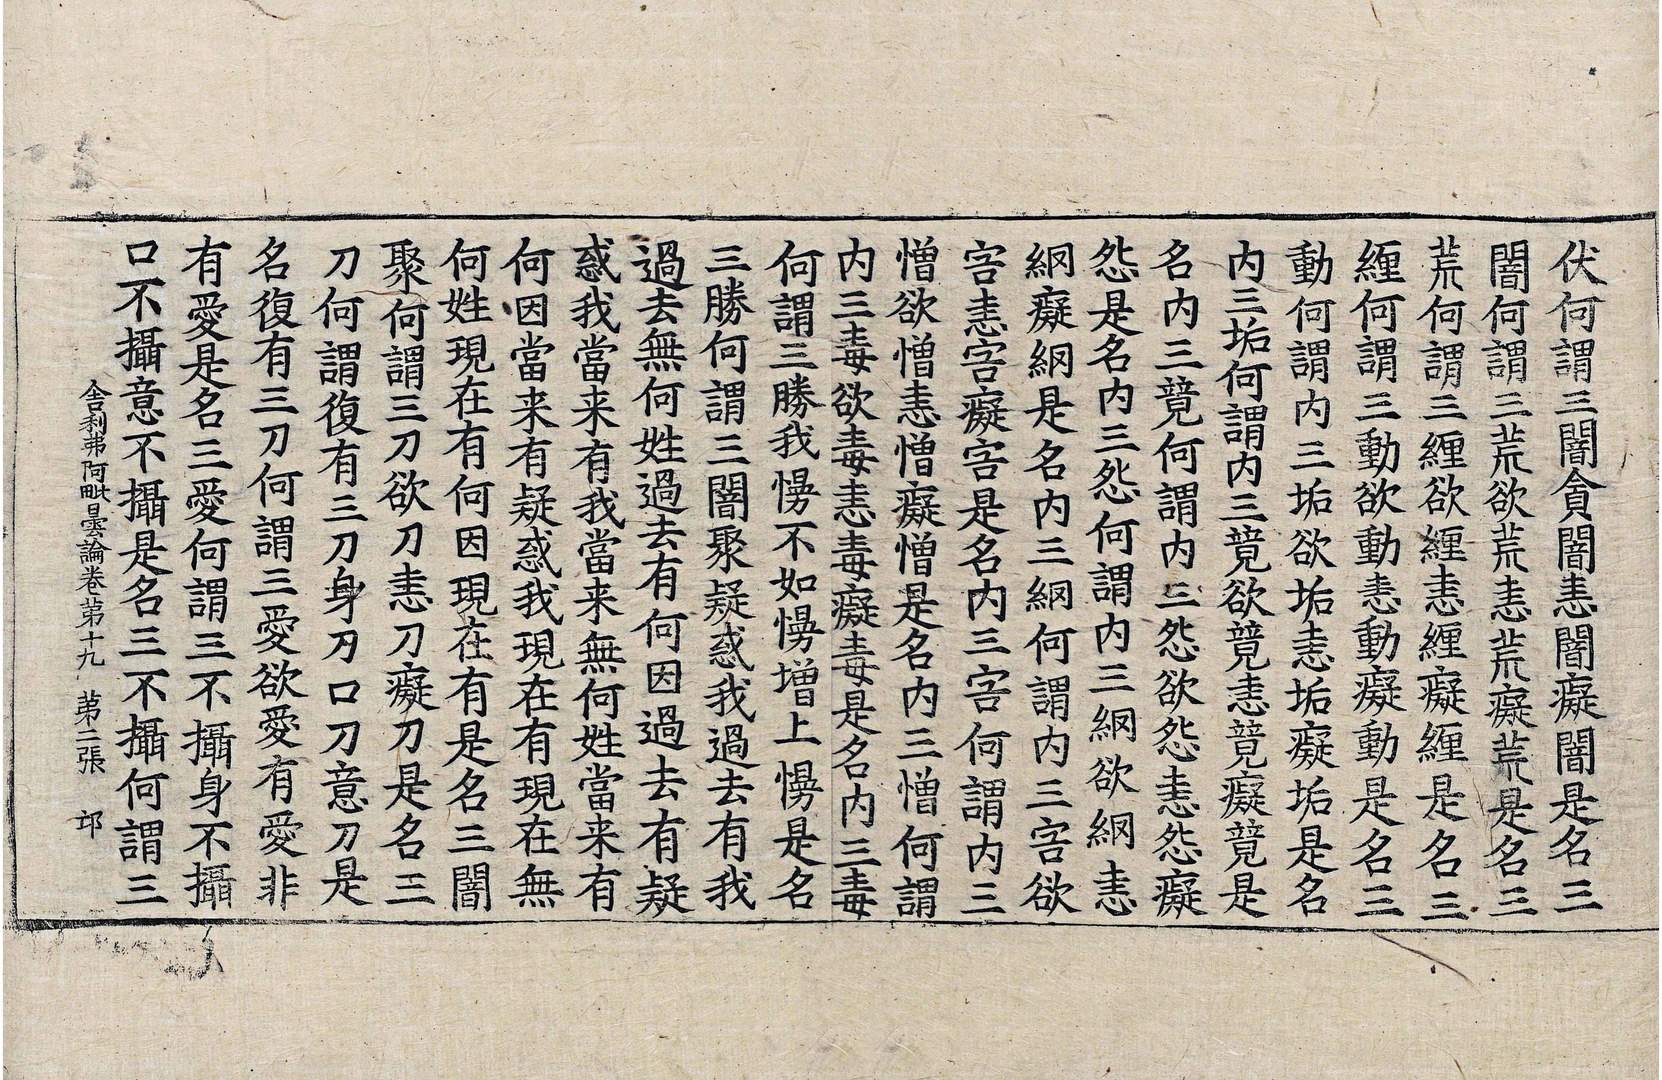 伏何謂三闇貪闇恚闇癡闇是名三
闇何謂三荒欲荒恚荒癡荒是名三
荒何謂三緾欲緾恚緾癡緾是名三
緾何謂三動欲動恚動癡動是名三
動何謂内三垢欲垢恚垢癡垢是名
内三垢何謂内三竟欲竟恚竟癡竟是
名内三竟何謂内三怨欲怨恚怨癡
怨是名内三怨何謂内三網欲網恚
網癡網是名内三網何謂内三害欲
害恚害癡害是名内三害何謂内三
憎欲憎恚憎癡憎是名内三憎何謂
内三毒欲毒恚毒癡毒是名内三毒
何謂三勝我慢不如慢增上慢是名
三勝何謂三闇聚疑惑我過去有我
過去無何姓過去有何因過去有疑
惑我當来有我當来無何姓當来有
何因當来有疑惑我現在有現在無
何姓現在有何因現在有是名三闇
聚何謂三刀欲刀恚刀癡刀是名三
刀何謂復有三刀身刀口刀意刀是
名復有三刀何謂三愛欲愛有愛非
有愛是名三愛何謂三不攝身不攝
口不攝意不攝是名三不攝何謂三
舍利弗阿毗曇論卷第十九 第二張 邙